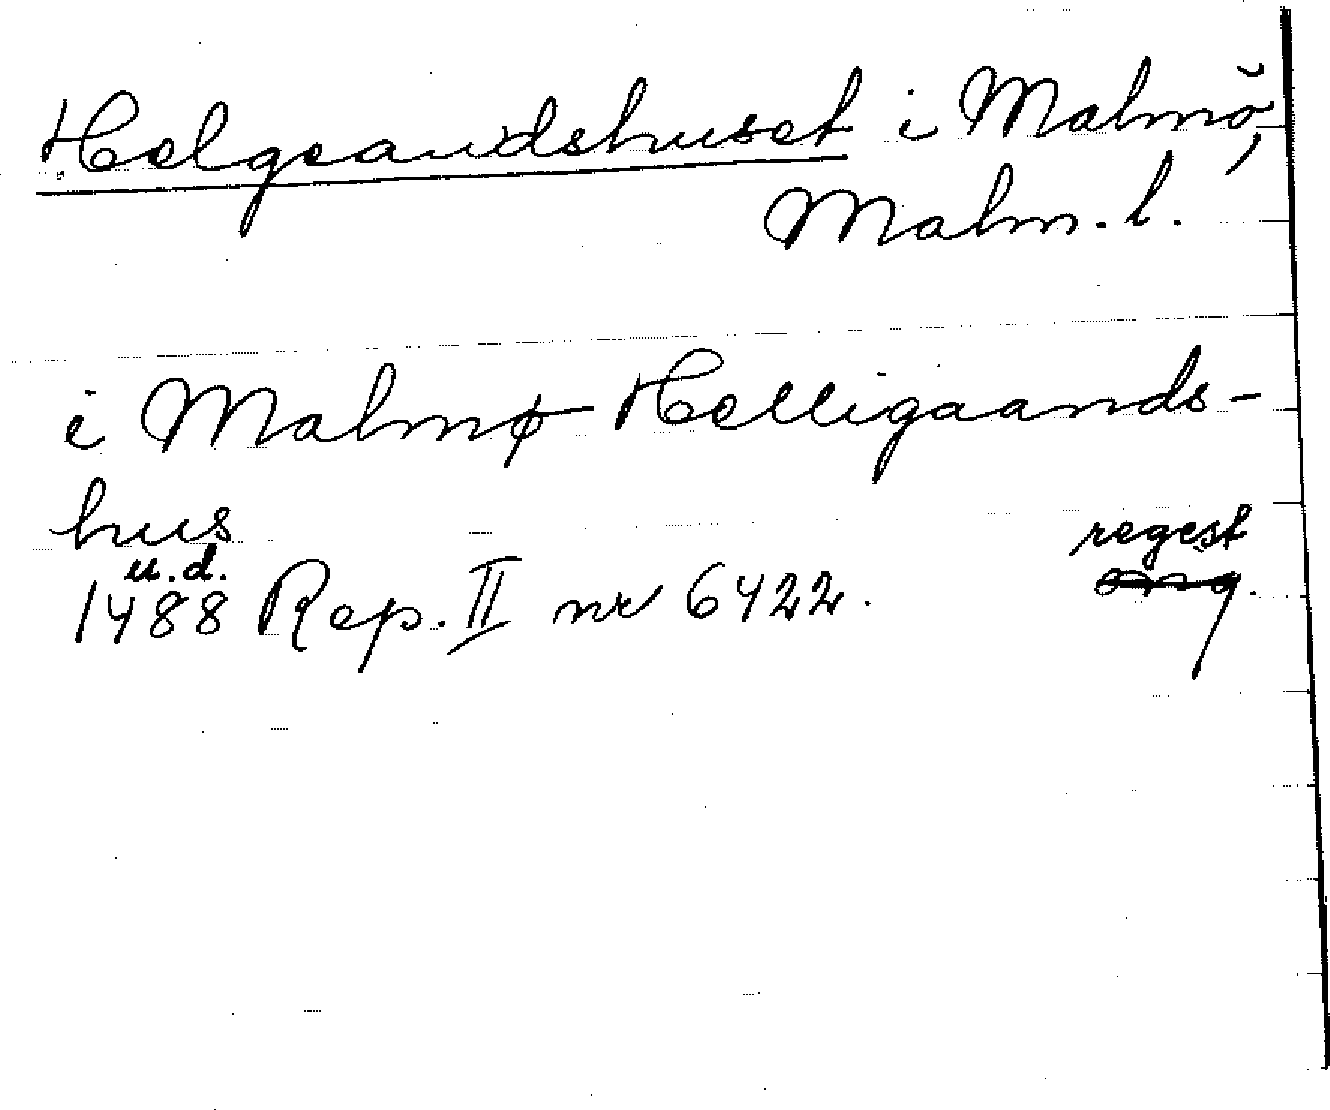 Helgeandshuset i Malmö,
Malm. l.
i Malmø Helligaands-
hus
u.d. regest
1488 Rep. II nr 6422. omg.